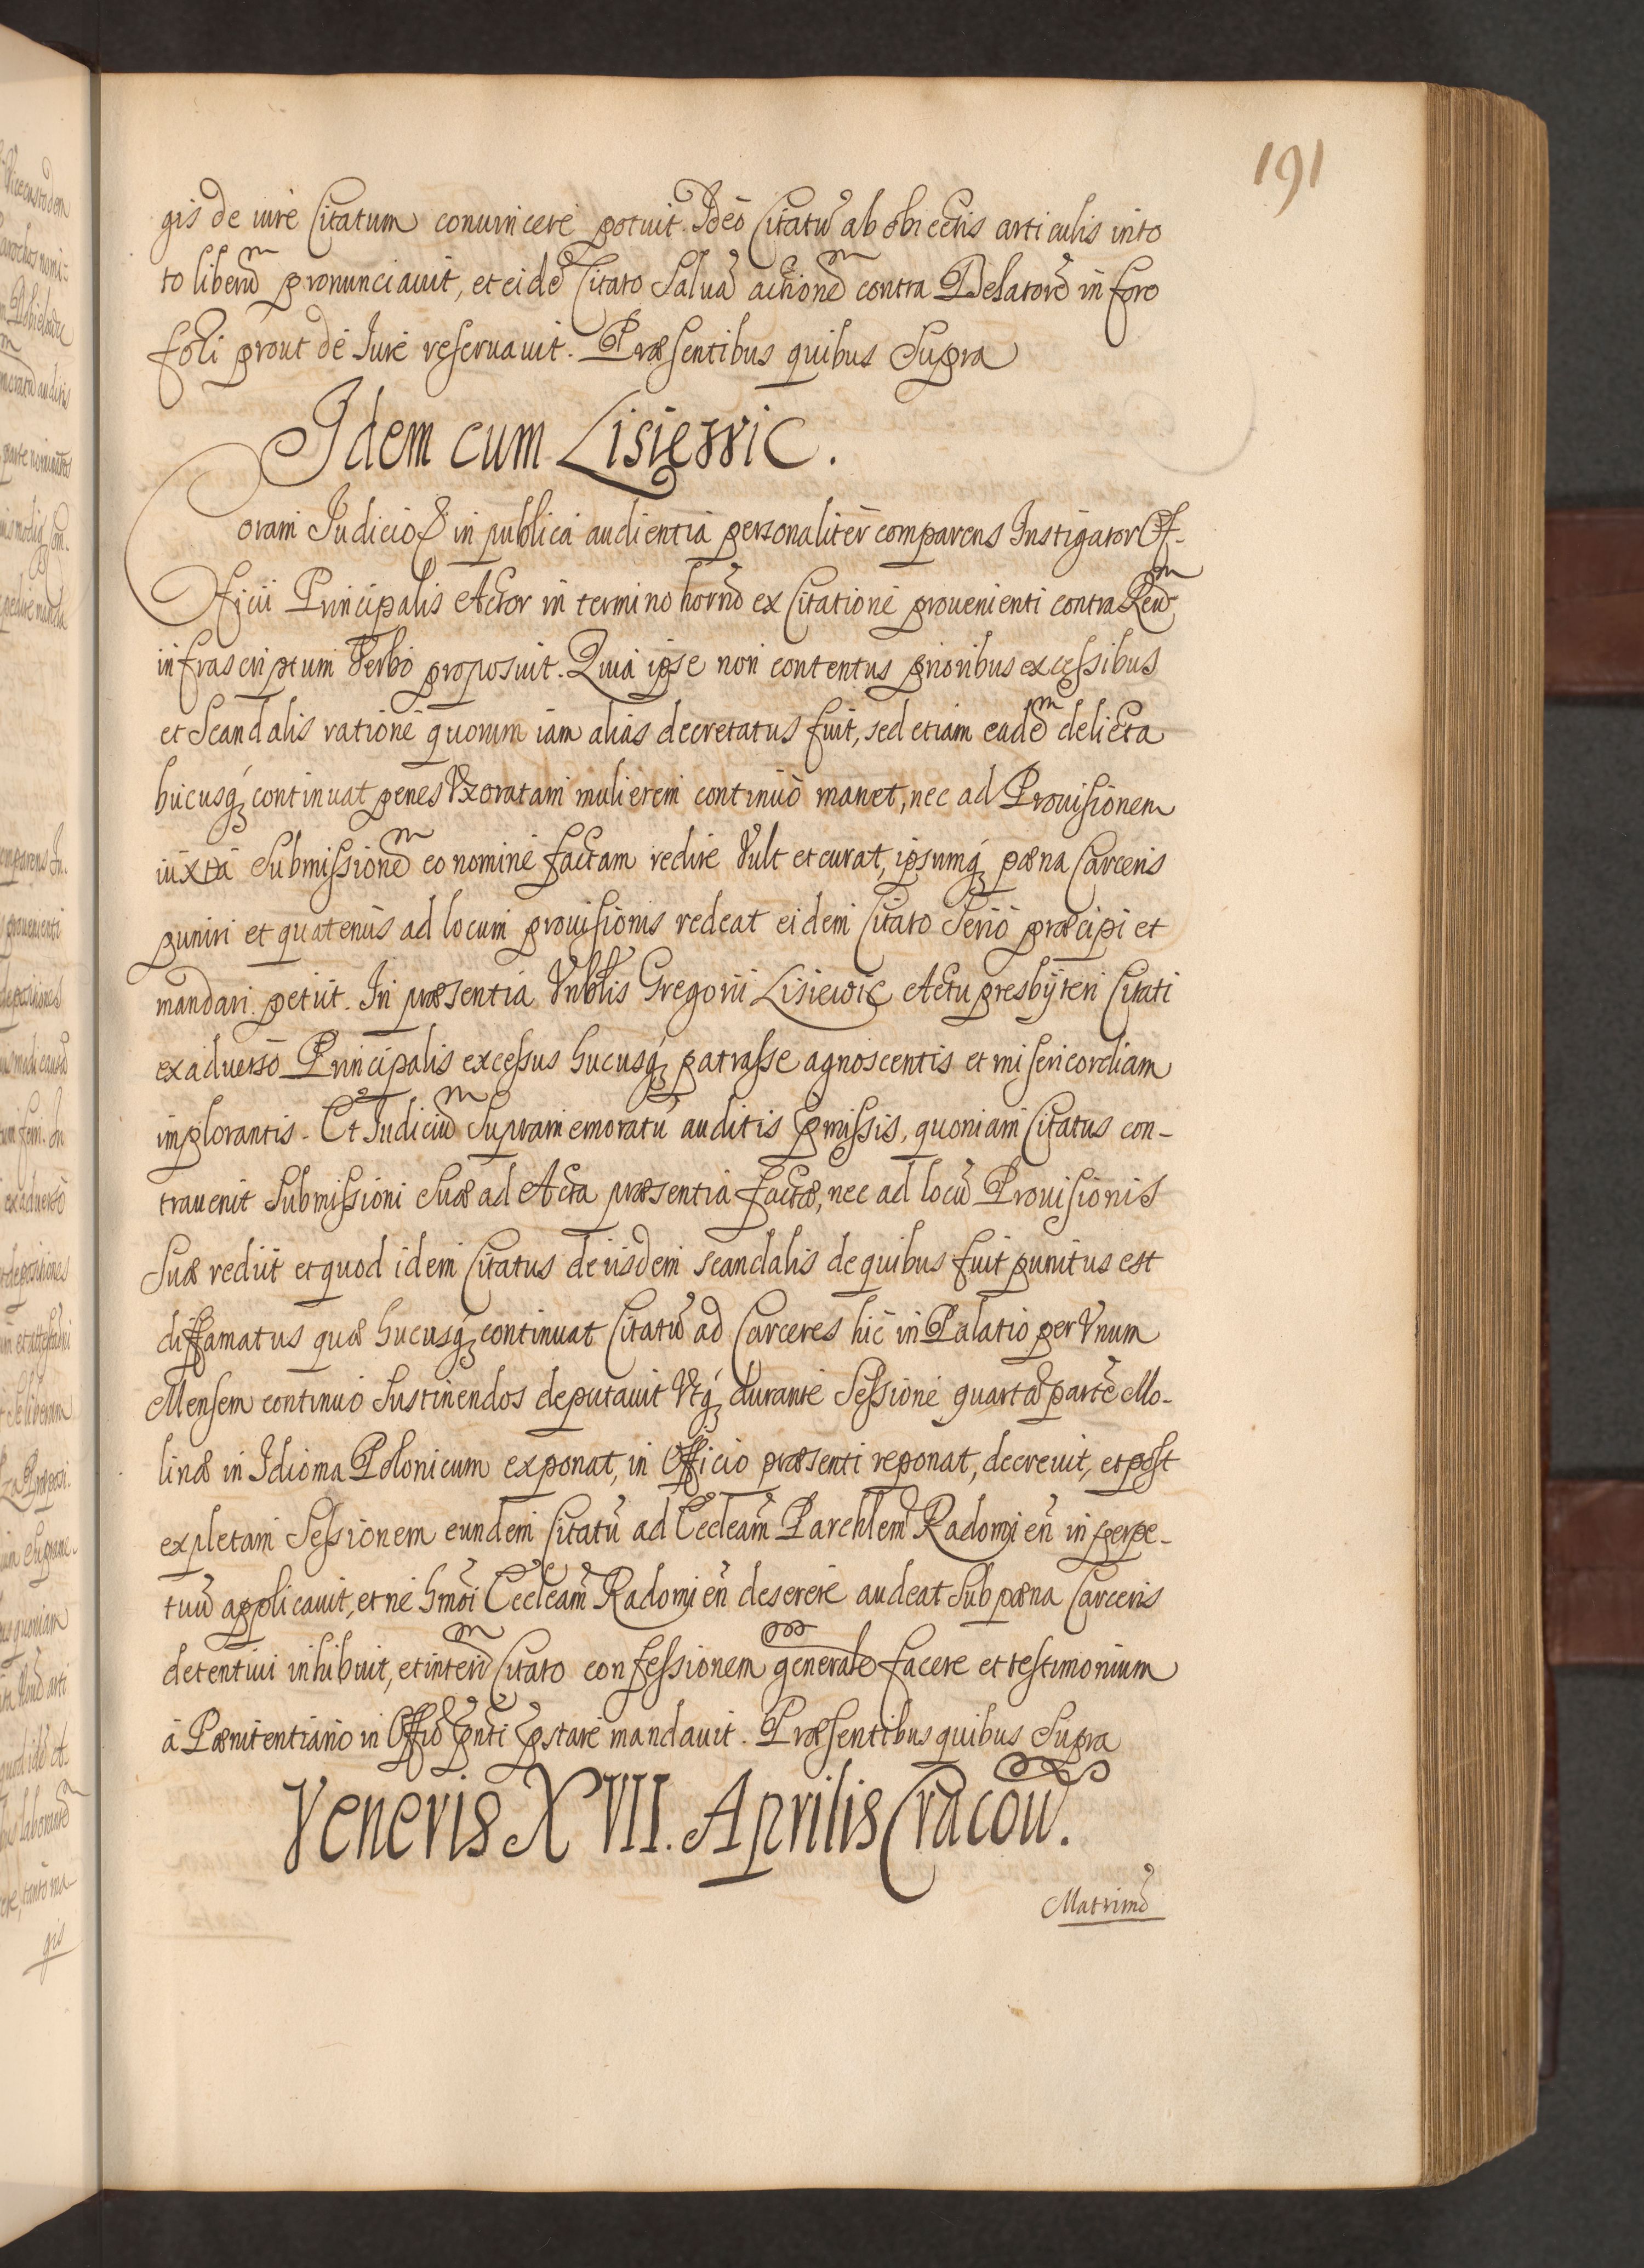 191
gis de iure Citatum conuincere potuit. Ideo Citatū ab obiectis articulis in to
to liberū pronunciauit, et eidē Citato Saluā actionē contra Delatorē in foro
foli prout de Iure reseruauit. Præsentibus quibus Supra
Idem cum Lisiewic.
Coram Iudicio & in publica audientia personaliter comparens Instigator Of-
ficii Principalis Actor in termino horno ex Citatione prouenienti contra Reū
infrascriptum Verbo proposuit. Quia ipse non contentus prioribus excessibus
et Scandalis ratione quorum iam alias decretatus fuit, sed etiam eadē delicta
hucusq₃ continuat penes Vxoratam mulierem continuo manet, nec ad Prouisionem
iuxta Submissionē eo nomine factam redire Vult et curat, ipsumq₃ pœna Carceris
puniri et quatenus ad locum prouisionis redeat eidem Citato Serio præcipi et
mandari petiit. In præsentia Vnblis Gregorii Lisiewic Actu presbÿteri Citati
ex aduerso Principalis excessus hucusq₃ patrasse agnoscentis et misericordiam
implorantis. Et Iudiciū Supramemoratū auditis pmissis, quoniam Citatus con-
trauenit Submissioni Suæ ad Acta præsentia factæ, nec ad locū Prouisionis
Suæ rediit et quod idem Citatus de iisdem scandalis de quibus fuit punitus est
diffamatus quæ hucusq₃ continuat Citatū ad Carceres hic in Palatio per Vnum
Mensem continuo Sustinendos deputauit Vtq₃ durante Sessione quartā partē Mo-
linæ in Idioma Polonicum exponat, in Officio præsenti reponat, decreuit, et post
expletam Sessionem eundem Citatū ad Eccleām Parchlem Radomien̄ in perpe-
tuū applicauit, et ne hmōi Eccleām Radomien̄ deserere audeat Sub pœna Carceris
detentiui inhibuit, et interī Citato confessionem generalē facere et testimonium
à Pœnitentiario in Offio pnti pstare mandauit. Præsentibus quibus Supra
Veneris XVII. Aprilis Cracou.
Matrimō